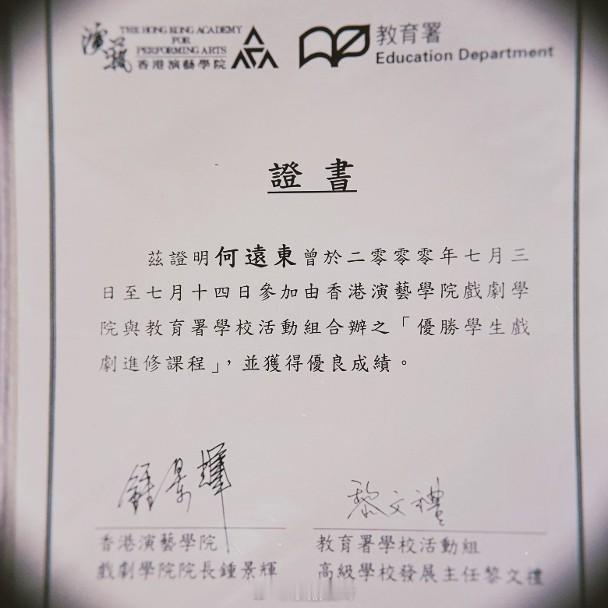 演藝
THE HONG KONG ACADEMY
FOR
PERFORMING ARTS
香港演藝學院
教育署
Education Department
證書
茲證明何遠東曾於二零零零年七月三
日至七月十四日參加由香港演藝學院戲劇學
院與教育署學校活動組合辦之「優勝學生戲
劇進修課程」，並獲得優良成績。
鍾景輝
黎文禮
香港演藝學院
戲劇學院院長鍾景輝
教育署學校活動組
高級學校發展主任黎文禮